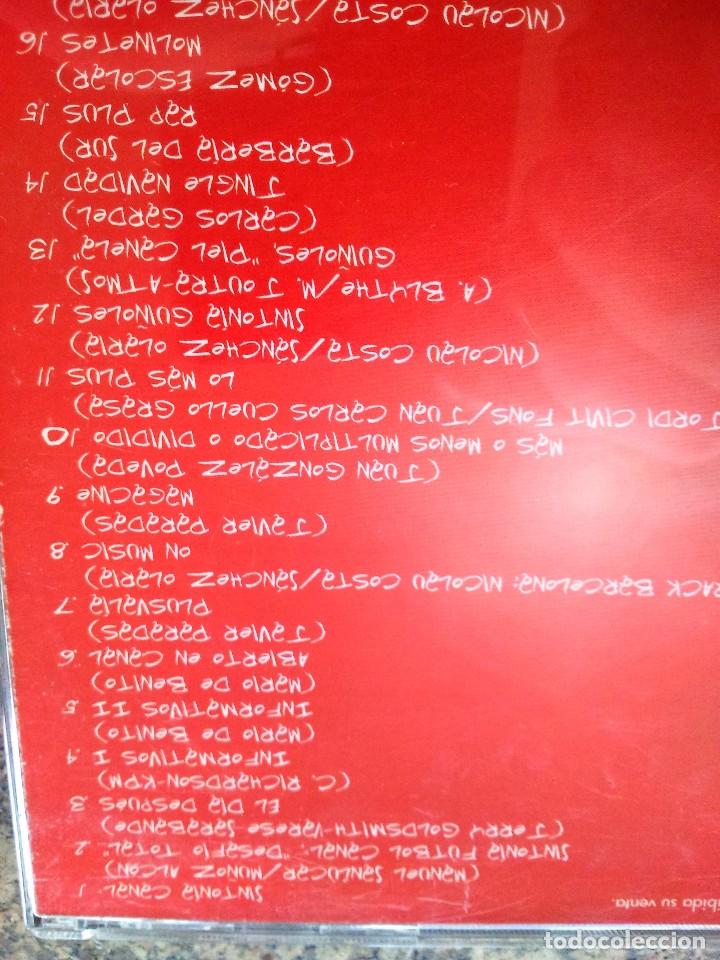 SINTONÍA CANAL 1.
(MANUEL SANLUCAR/MUÑOZ ALCÓN)
SINTONÍA FUTBOL CANAL. "DESAFÍO TOTAL" 2.
(JERRY GOLDSMITH-VARESE SARABANDE)
EL DÍA DESPUÉS 3.
(C. RICHARDSON-KPM)
INFORMATIVOS I 4.
(MARIO DE BENITO)
INFORMATIVOS II 5.
(MARIO DE BENITO)
ABIERTO EN CANAL 6.
(JAVIER PARADAS)
PLUSVALIA 7.
RACK BARCELONA: NICOLAU COSTA/SÁNCHEZ OLARIA)
ON MUSIC 8.
(JAVIER PARADAS)
MAGACINE 9.
(JUAN GONZÁLEZ POVEDA)
MÁS O MENOS MULTIPLICADO O DIVIDIDO 10.
JORDI CIVIT FONS/JUAN CARLOS CUELLO GRASA)
LO MÁS PLUS 11.
(NICOLAU COSTA/SÁNCHEZ OLARIA)
SINTONÍA GUIÑOLES 12.
(A. BLYTHE/M. JOUTRA-ATMOS)
GUIÑOLES. "PIEL CANELA" 13.
(CARLOS GARDEL)
JINGLE NAVIDAD 14.
(BARBERÍA DEL SUR)
RAP PLUS 15.
(GÓMEZ ESCOLAR)
MOLINETES 16.
(NICOLAU COSTA/SÁNCHEZ OLARIA)
ibida su venta.
todocoleccion